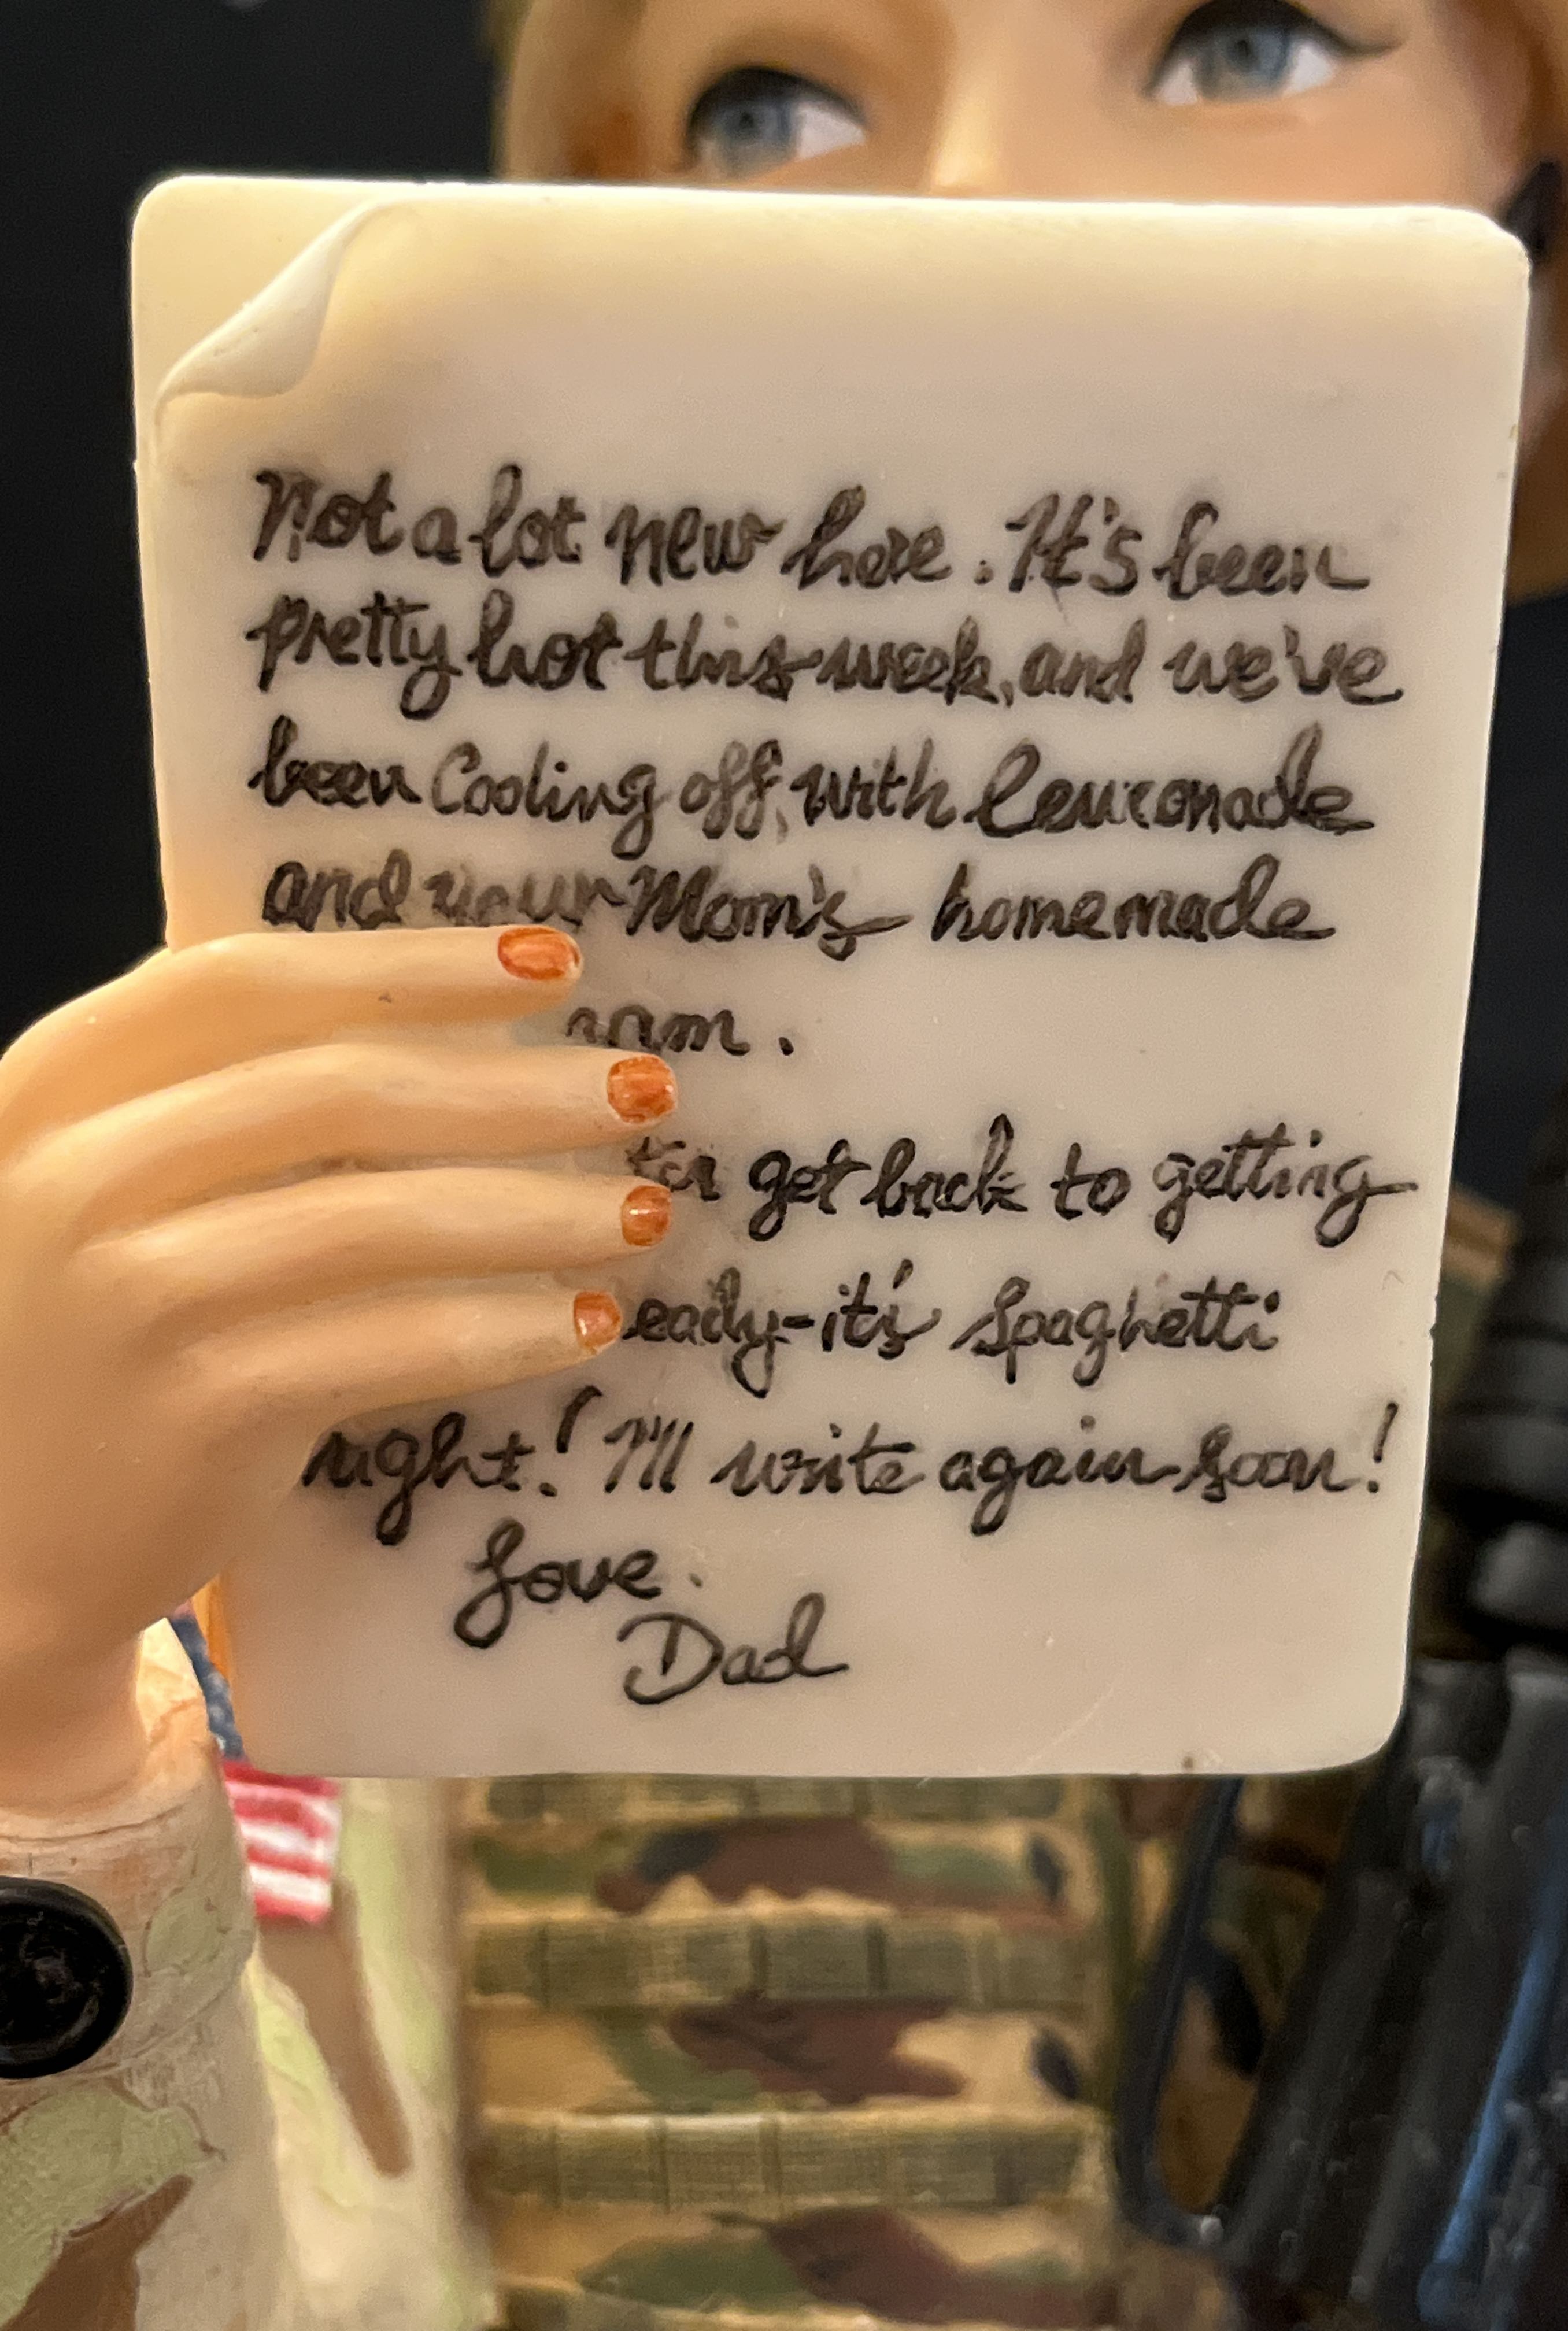 Not a lot new here. It's been
pretty hot this week, and we've
been Cooling off, with lemonade
and your Mom's homemade
get back to getting
it's spaghetti
night! I'll write again soon!
Love.
Dad